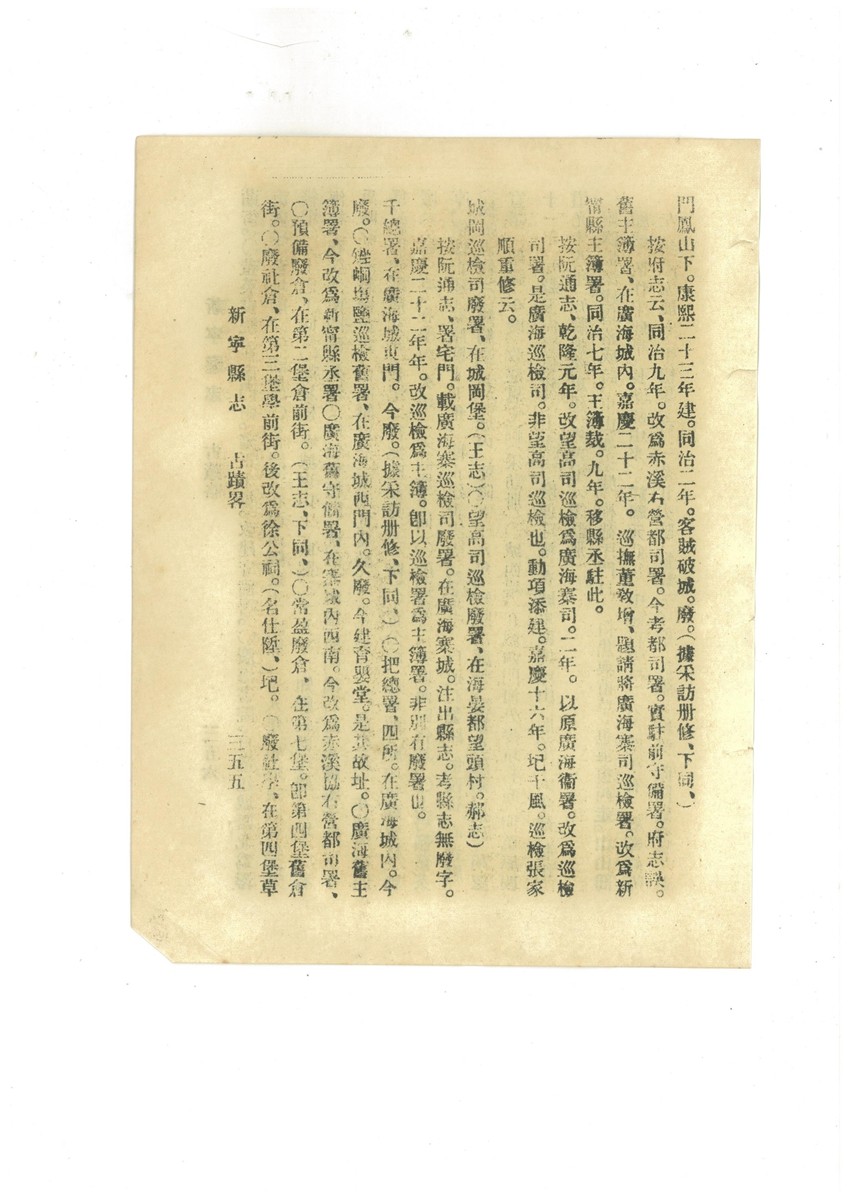 門鳳山下。康熙二十三年建。同治二年。客賊破城。廢。（據采訪册修、下同、）
按府志云、同治九年。改爲赤溪右營都司署。今考都司署。實駐前守備署。府志誤。
舊主簿署、在廣海城內。嘉慶二十二年。巡撫董敎增、題請將廣海寨司巡檢署。改爲新
甯縣主簿署。同治七年。主簿裁。九年。移縣丞駐此。
按阮通志、乾隆元年。改望高司巡檢爲廣海寨司。二年。以原廣海衞署。改爲巡檢
司署。是廣海巡檢司。非望高司巡檢也。動項添建。嘉慶十六年。圮于風。巡檢張家
順重修云。
城岡巡檢司廢署、在城岡堡。（王志）〇望高司巡檢廢署、在海晏都望頭村。（郝志）
按阮通志、署宅門。載廣海寨巡檢司廢署。在廣海寨城。注出縣志。考縣志無廢字。
嘉慶二十二年年。改巡檢爲主簿。卽以巡檢署爲主簿署。非別有廢署也。
千總署、在廣海城東門。今廢。（據采訪册修、下同、）〇把總署、四所。在廣海城內。今
廢。〇矬峒塲鹽巡檢舊署、在廣海城西門內。久廢。今建育嬰堂。是其故址。〇廣海舊主
簿署、今改爲新甯縣丞署〇廣海舊守備署、在寨城內西南。今改爲赤溪協右營都司署、
〇預備廢倉、在第二堡倉前街。（王志、下同、）〇常盈廢倉、在第七堡。卽第四堡舊倉
街。〇廢社倉、在第三堡學前街。後改爲徐公祠。（名仕陞、）圮。〇廢社學、在第四堡草
新寧縣志 古蹟畧 三五五